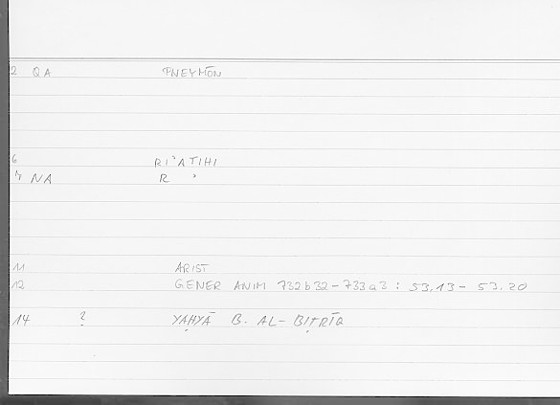 2 QA PNEYMŌN
6 RIʾATIHI
7 NA R ʾ
11 ARIST
12 GENER ANIM 732b32-733a3 : 53,13- 53.20
14 ? YAḤYĀ B. AL-BIṬRĪQ